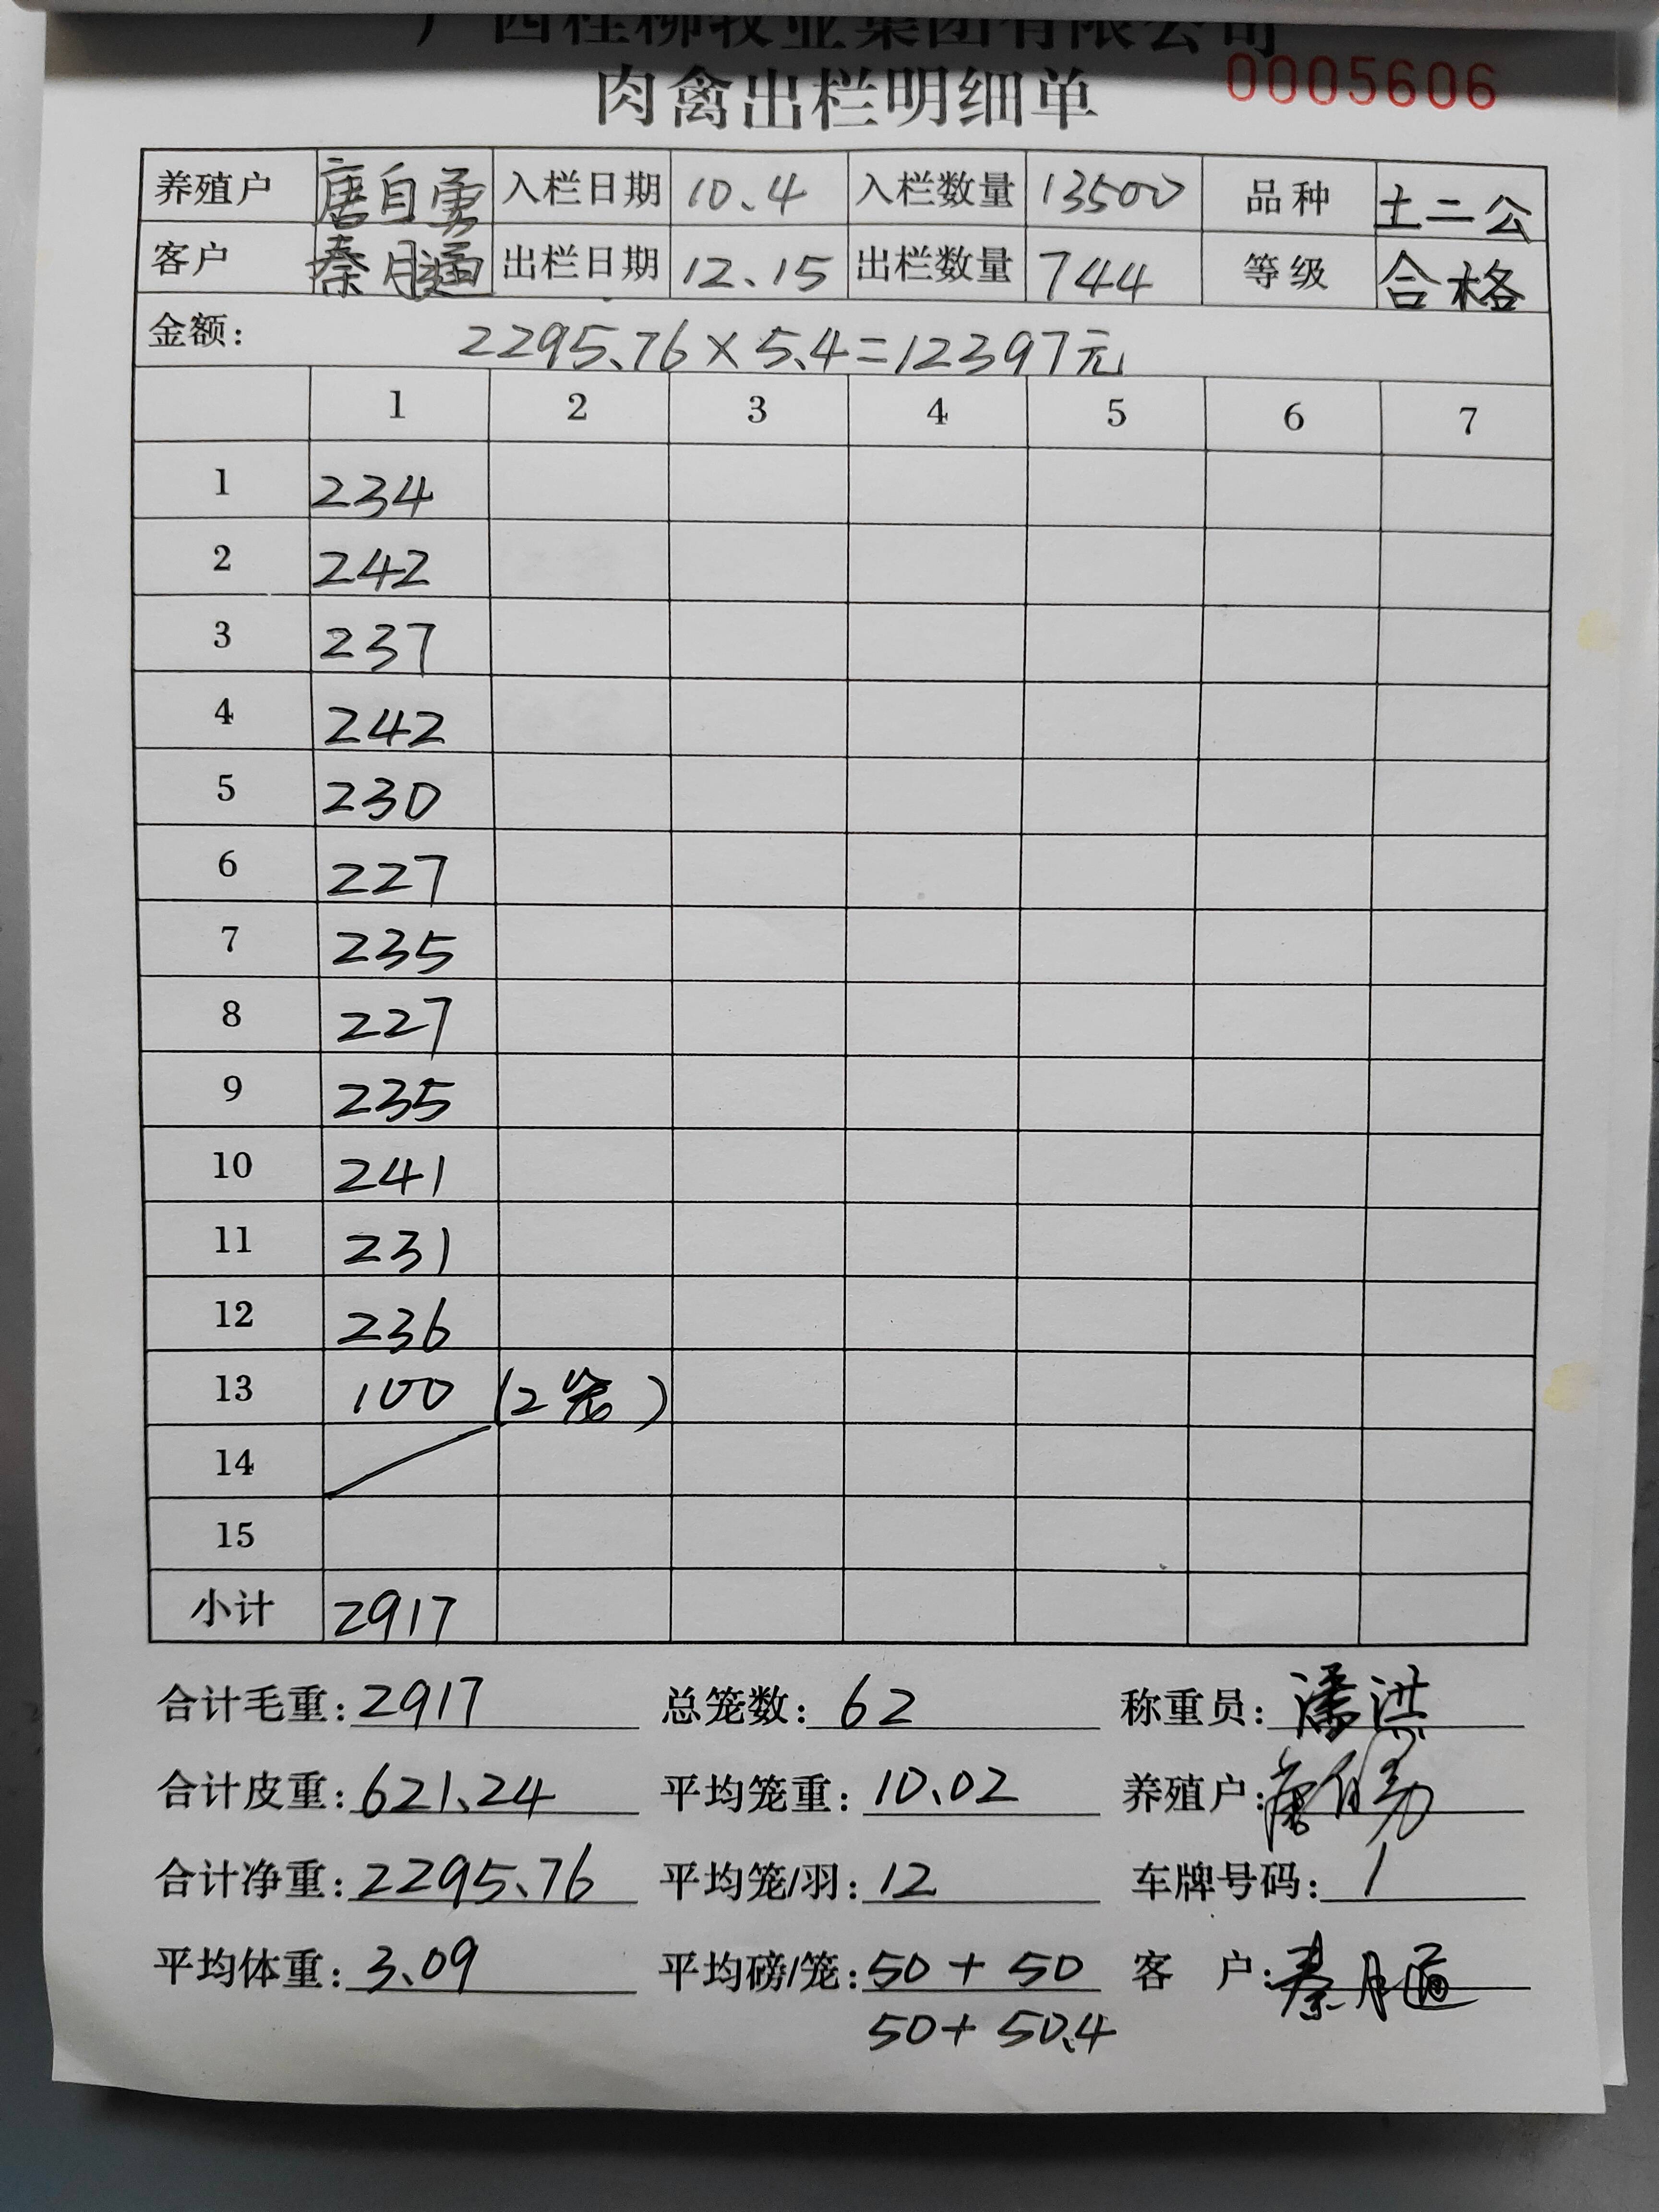 广西桂柳牧业集团有限公司
肉禽出栏明细单 0005606
养殖户 唐自勇 入栏日期 10.4 入栏数量 13500 品种 土二公
客户 秦月通 出栏日期 12.15 出栏数量 744 等级 合格
金额: 2295.76×5.4=12397元
1 2 3 4 5 6 7
1 234
2 242
3 237
4 242
5 230
6 227
7 235
8 227
9 235
10 241
11 231
12 236
13 100 (2笼)
14
15
小计 2917
合计毛重: 2917 总笼数: 62 称重员: 潘洪
合计皮重: 621.24 平均笼重: 10.02 养殖户: 唐自勇
合计净重: 2295.76 平均笼/羽: 12 车牌号码: /
平均体重: 3.09 平均磅/笼: 50+50 客 户: 秦月通
50+50.4